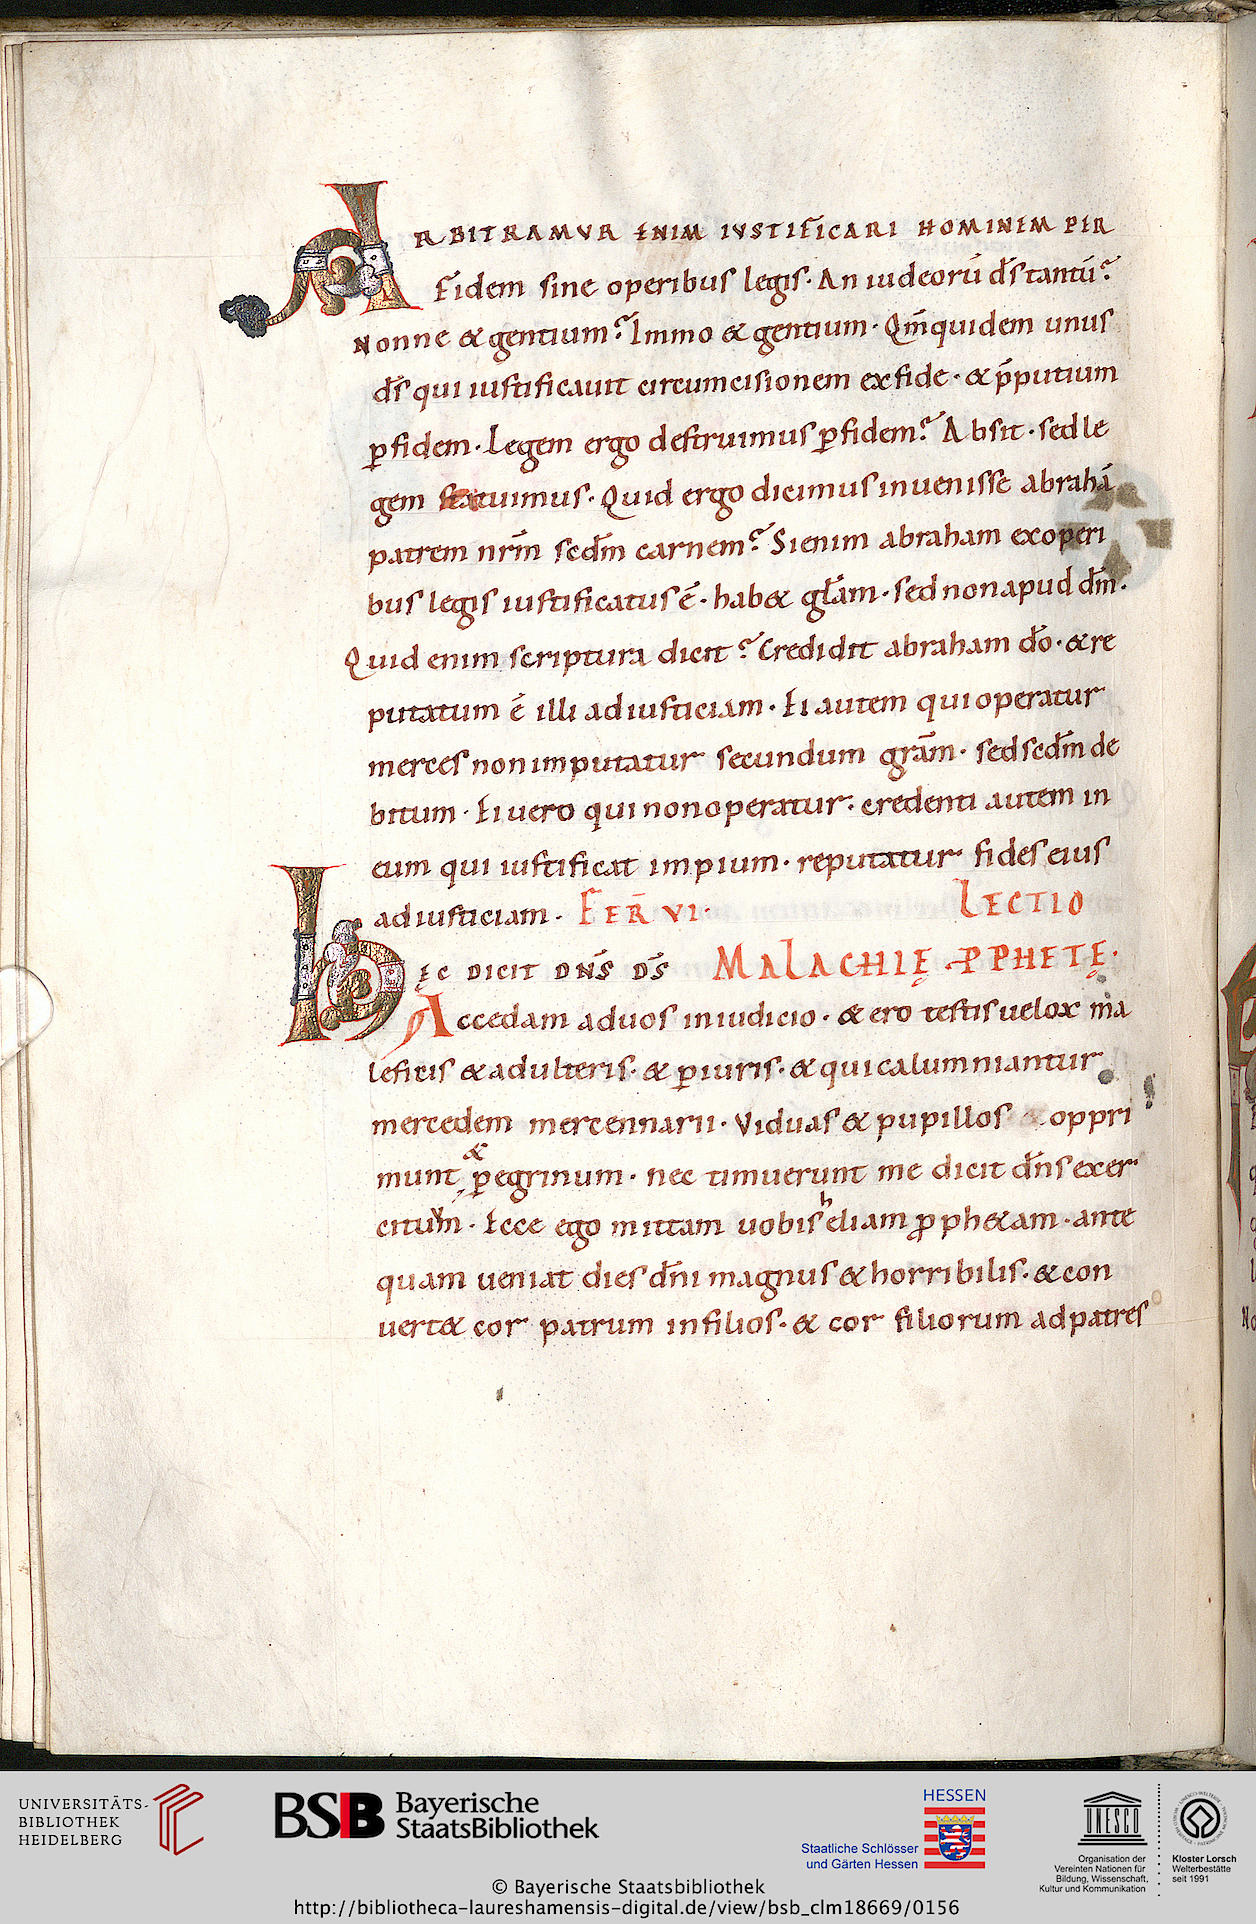 ARBITRAMVR ENIM IVSTIFICARI HOMINEM PER
Fidem sine operibus legis· An iudeorū d̄s tantū?
Nonne & gentium? Immo & gentium· Qm̄quidem unus
d̄s qui iustificauit circumcisionem ex fide· & p̄putium
ꝑ fidem· Legem ergo destruimus ꝑ fidem? Absit· sed le
gem statuimus· Quid ergo dicimus inuenisse abrahā
patrem nr̄m scd̄m carnem? Si enim abraham ex operi
bus legis iustificatus ē· hab& gl̄am· sed non apud dm̄·
Quid enim scriptura dicit? Credidit abraham dō· & re
putatum ē illi ad iusticiam· Ei autem qui operatur
merces non imputatur secundum grām· sed scd̄m de
bitum· Ei uero qui non operatur· credenti autem in
eum qui iustificat impium· reputatur fides eius
ad iusticiam· FER̄ VI· LECTIO
HĘC DICIT DN̄S D̄S MALACHIĘ PPHETĘ·
Accedam ad uos in iudicio· & ero testis uelox ma
leficis & adulteris· & ꝑiuris· & qui calumniantur
mercedem mercennarii· Viduas & pupillos & oppri
munt & ꝑegrinum· nec timuerunt me dicit dn̄s exer
cituum· Ecce ego mittam uobis heliam ꝓph&am· ante
quam ueniat dies dn̄i magnus & horribilis· & con
uert& cor patrum in filios· & cor filiorum ad patres
UNIVERSITÄTS-
BIBLIOTHEK
HEIDELBERG
BSB Bayerische
StaatsBibliothek
HESSEN
Staatliche Schlösser
und Gärten Hessen
UNESCO
Organisation der
Vereinten Nationen für
Bildung, Wissenschaft,
Kultur und Kommunikation
Kloster Lorsch
Welterbestätte
seit 1991
© Bayerische Staatsbibliothek
http://bibliotheca-laureshamensis-digital.de/view/bsb_clm18669/0156